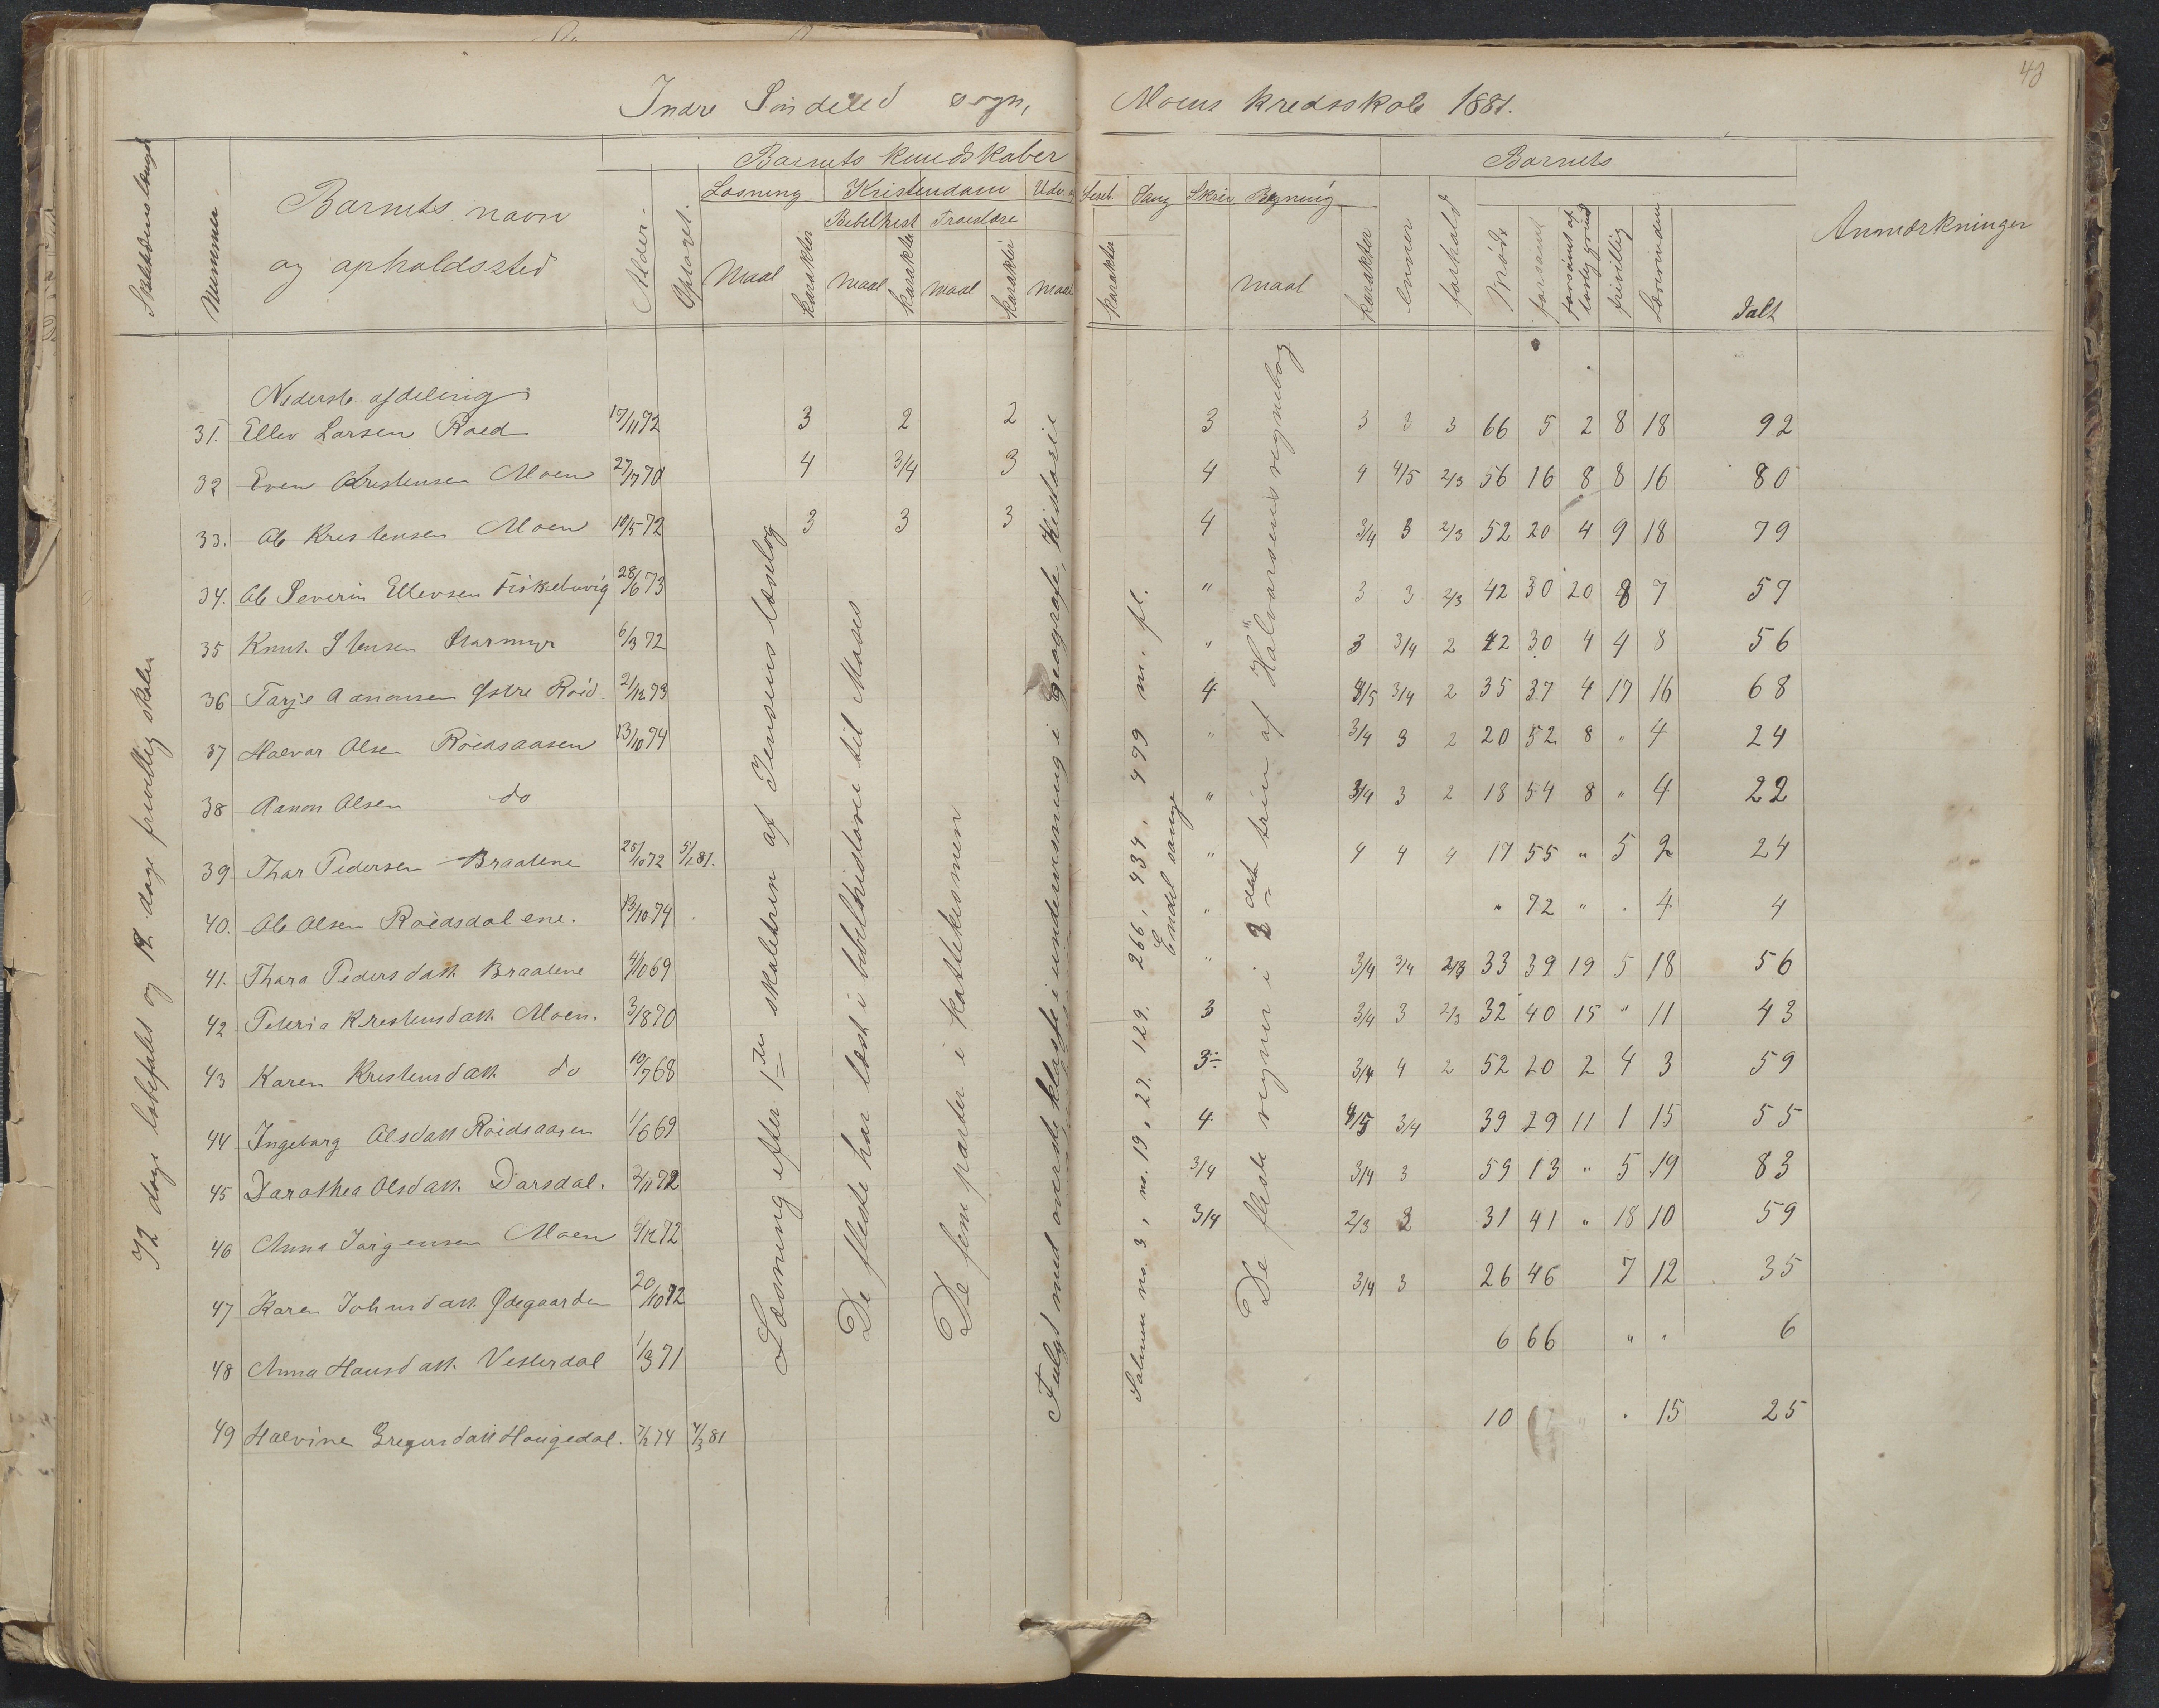 48
Indre Søndeled sogn, Moens kredsskole 1881.
Skoletidens længde
Nummer.
Barnets navn
og opholdssted
Alder.
Optaget.
Barnets kundskaber
Læsning Kristendom Udv. og Selsk. Sang Skriv. Regning
Bibelhist Troeslære
Maal karakter maal karakter maal karakter maal karakter maal karakter
Barnets
evner forhold
Mødt forsømt forsømt af lovlig grund frivillig Ialt
Anmærkninger
72 dage lobefalet og 12 dage frivillig skolen
Læsning efter 1ste skoletrin af Jensens læsebog
De fleste har læst i bibelhistorie til Moses
De fem parter i kattekismen
Fulgt med øverste klasse i undervisning i Geografi, Historie
Salmen no. 3, no. 19, 27. 129. 266, 434, 479 m. fl.
Endel sange
De fleste regner i 2det trin af Halvorsens regnebog
Nederste afdeling
31. Ellev Larsen Roed 17/11 72 3 2 2 3 3 3 3 66 5 2 8 18 92
32 Even Kristensen Moen 27/7 70 4 3/4 3 4 4 4/5 2/3 56 16 8 8 16 80
33. Ole Kristensen Moen 10/5 72 3 3 3 4 3/4 3 2/3 52 20 4 9 18 79
34. Ole Severin Ellevsen Fiskebuvig 28/6 73 " 3 3 2/3 42 30 20 8 7 57
35 Knut Stensen Starmyr 6/3 72 " 3 3/4 2 42 30 4 4 8 56
36 Tarje Aanonsen Østre Röid 21/12 73 4 4/5 3/4 2 35 37 4 17 16 68
37 Halvor Olsen Röedsaasen 13/10 74 " 3/4 3 2 20 52 8 " 4 24
38 Aanon Olsen do " 3/4 3 2 18 54 8 " 4 22
39 Thor Pedersen Braatene 25/10 72 5/1 81. " 4 4 4 17 55 " 5 2 24
40. Ole Olsen Roedsdalene. 13/10 74 " " 72 " . 4 4
41. Thora Pedersdatt. Braatene 4/10 69 " 3/4 3/4 2/3 33 39 19 5 18 56
42 Peteria Kristensdatt. Moen. 3/8 70 3 3/4 3 2/3 32 40 15 " 11 43
43 Karen Kristensdatt. do 10/7 68 3- 3/4 4 2 52 20 2 4 3 59
44 Ingeborg Olsdatt Roidsaasen 1/6 69 4 4/5 3/4 39 29 11 1 15 55
45 Dorothea Olsdatt. Dorsdal. 2/11 72 3/4 3/4 3 59 13 " 5 19 83
46 Anna Jörgensen Moen 6/12 72 3/4 2/3 3 31 41 " 18 10 59
47 Karen Johnsdatt. Ødegaarden 20/10 72 3/4 3 26 46 7 12 35
48 Anna Hansdatt. Vesterdal 1/3 71 6 66 " . 6
49 Halvine Gregersdatt Hougedal. 7/2 74 4/3 81 10 . 15 25